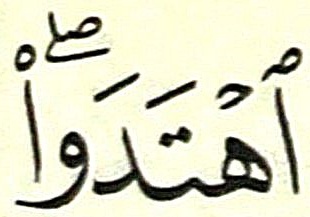 ٱهْتَدَوا۟ۖ